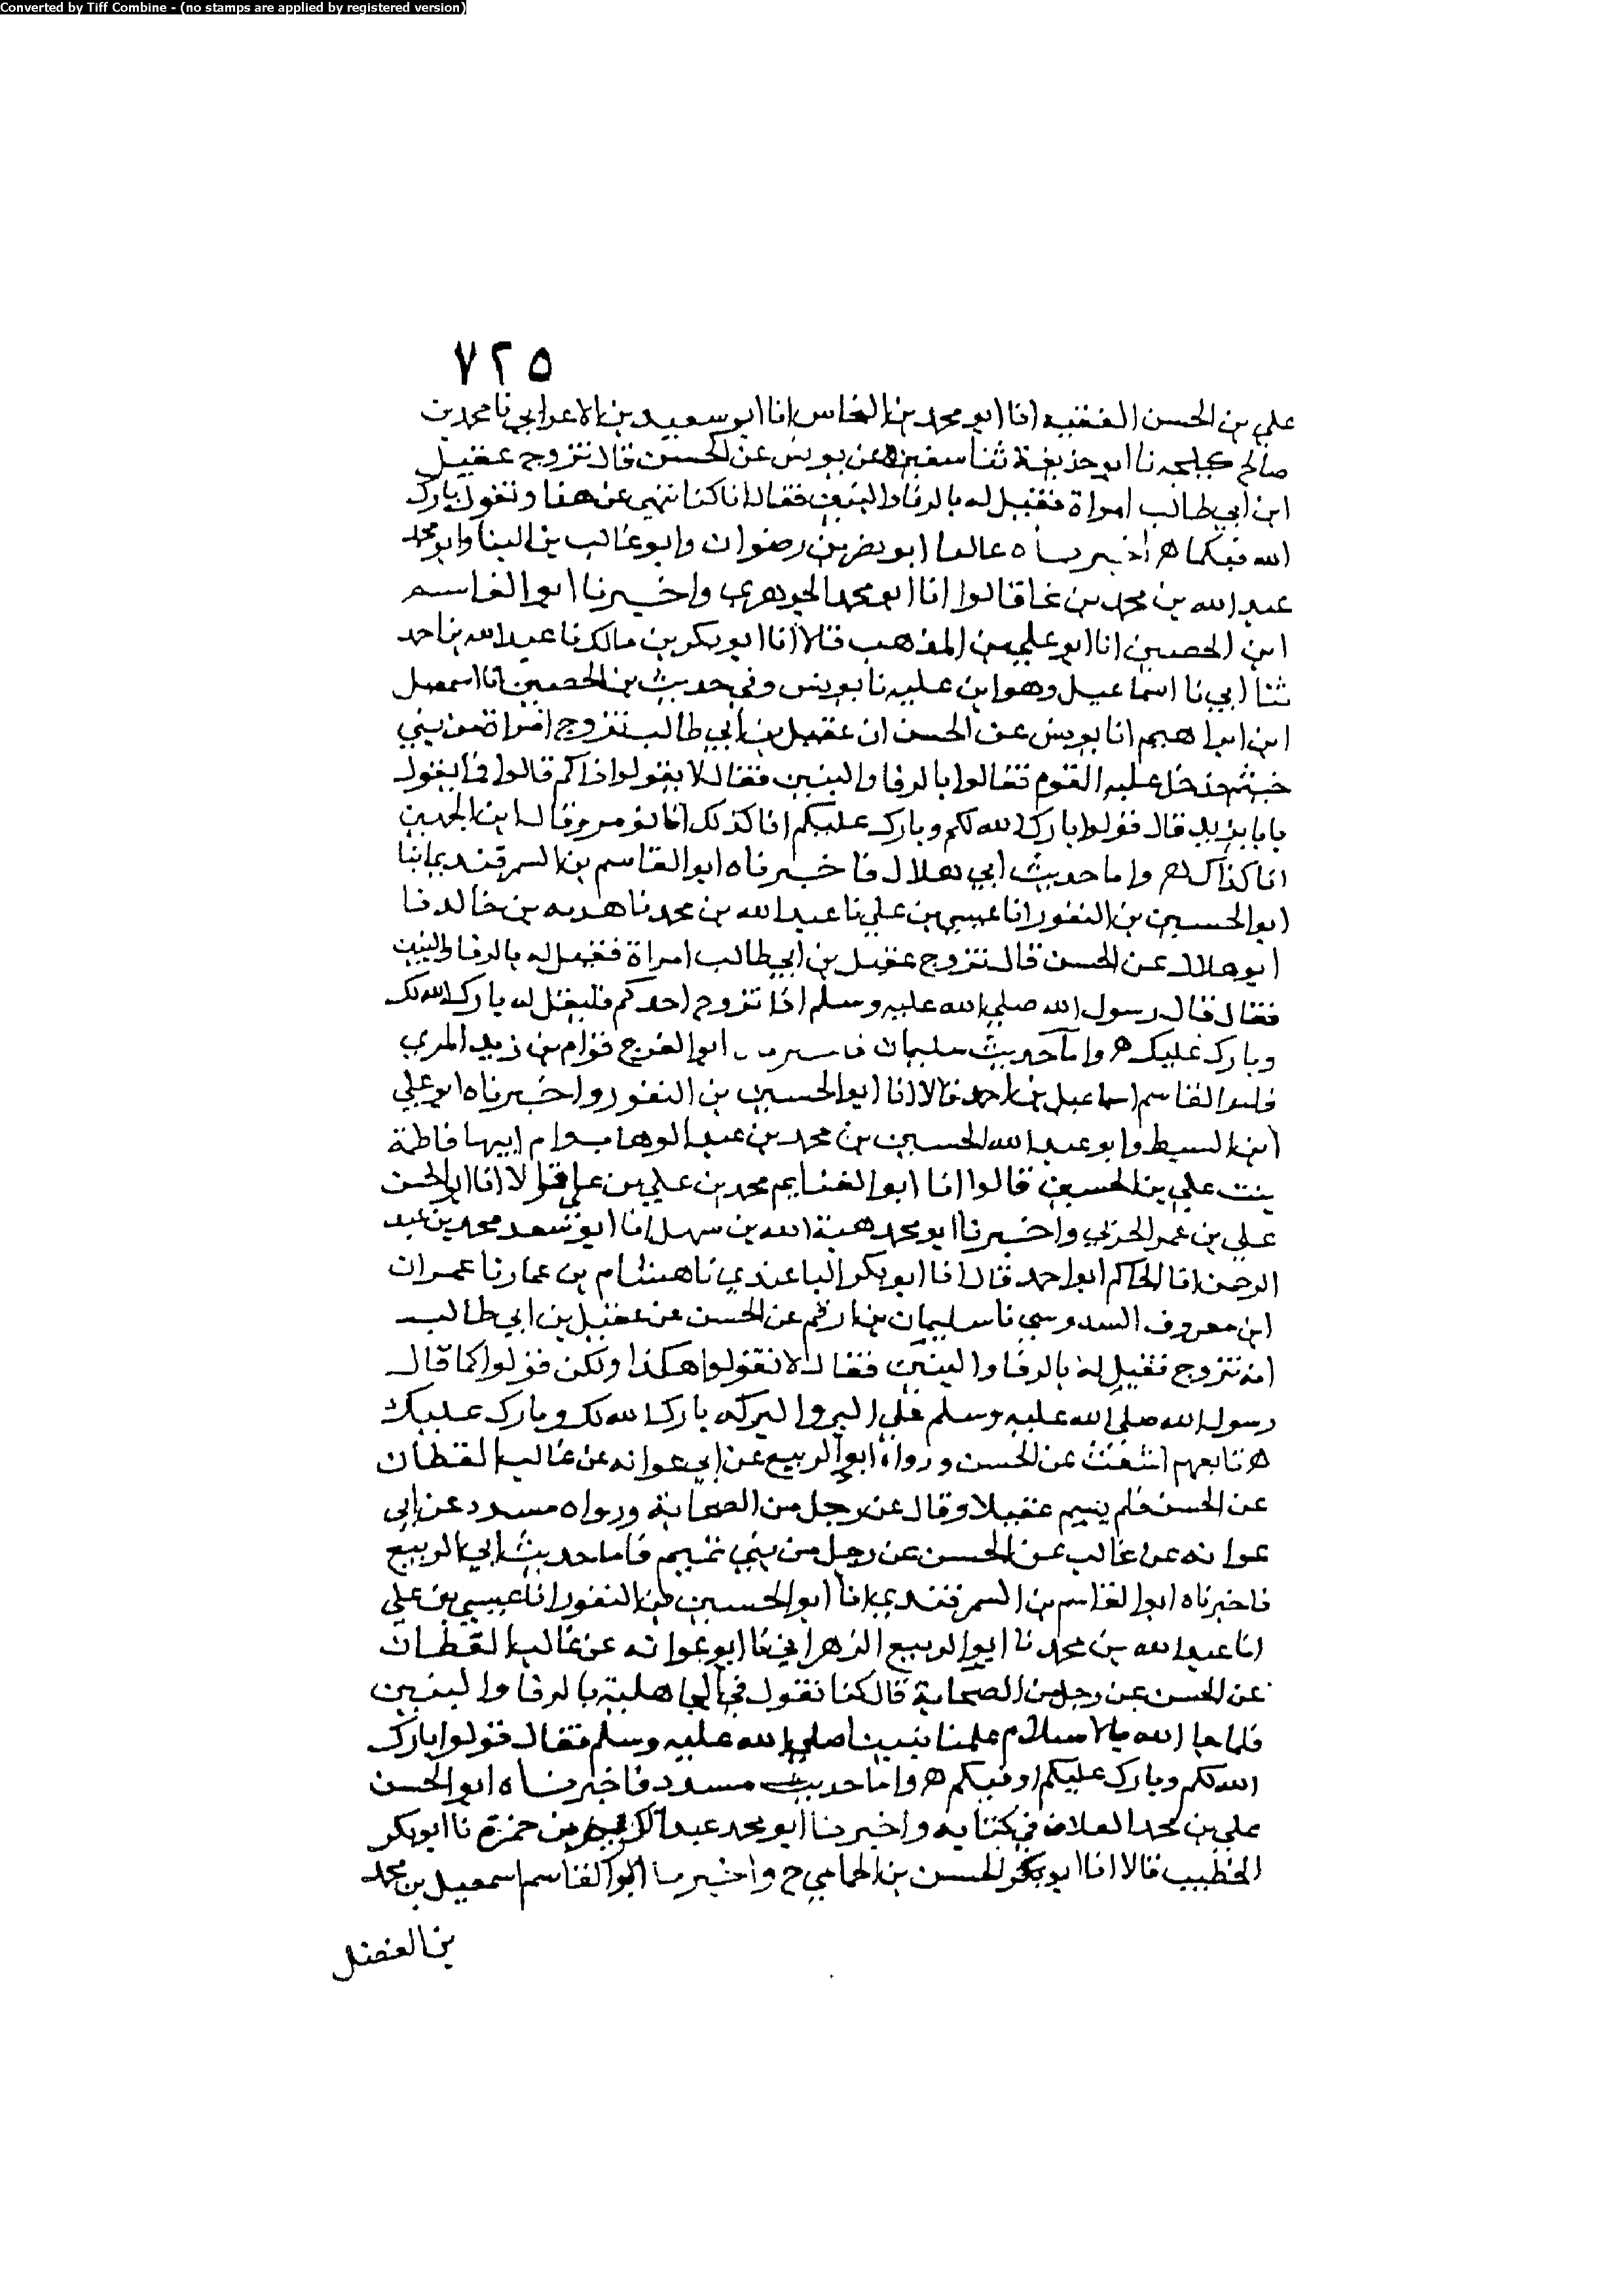 Converted by Tiff Combine - (no stamps are applied by registered version)
٧٢٥
علي بن الحسن الفقيه انا ابو محمد بن النحاس انا ابو سعيد بن الاعرابي نا محمد بن
صالح كيلجه نا ابو حذيفة ثنا سفين عن يونس عن الحسن قال تزوج عقيل
ابن ابي طالب امراة فقيل له بالرفا والبنين فقال انا كنا ننهى عن هذا ونقول بارك
الله فيكما ه اخبرناه عاليا ابو نصر بن رضوان وابو غالب بن البنا وابو محمد
عبد الله بن محمد بن نجا قالوا انا ابو محمد الجوهري واخبرنا ابو القاسم
ابن الحصين انا ابو علي بن المذهب قالا انا ابو بكر بن مالك نا عبد الله بن احمد
ثنا ابي نا اسماعيل وهو ابن عليه نا يونس وفي حديث بن الحصين انا اسمعيل
ابن ابراهيم انا يونس عن الحسن ان عقيل بن ابي طالب تزوج امراة من بني
جشم فدخل عليه القوم فقالوا بالرفا والبنين فقال لا تقولوا ذاكم قالوا فما نقول
يابا يزيد قال قولوا بارك الله لكم وبارك عليكم انا كذلك انا نؤمر وقال ابن الحصين
انا كذاك ه واما حديث ابي هلال فاخبرناه ابو القاسم بن السمرقندي انبا
ابو الحسين بن النقور انا عيسى بن علي نا عبد الله بن محمد نا هدبه بن خالد نا
ابو هلال عن الحسن قال تزوج عقيل بن ابي طالب امراة فقيل له بالرفا والبنين
فقال قال رسول الله صلى الله عليه وسلم اذا تزوج احدكم فليقل له بارك الله لك
وبارك عليك ه واما حديث سليمان ابو الفرج قوام بن زيد المري
القاسم اسماعيل بن احمد قالا انا ابو الحسين بن النقور واخبرناه ابو علي
ابن السبط وابو عبد الله الحسين بن محمد بن عبد الوهاب وام ابيها فاطمة
بنت علي بن الحسين قالوا انا ابو الغنايم محمد بن علي بن علي قالا انا ابو الحسن
علي بن عمر الحربي واخبرنا ابو محمد هبة الله بن سهل انا ابو سعد محمد بن عبد
الرحمن انا الحاكم ابو احمد قال انا ابو بكر الباغندي نا هشام بن عمار نا عمران
ابن معروف السدوسي نا سليمان بن ارقم عن الحسن عن عقيل بن ابي طالب
انه تزوج فقيل له بالرفا والبنين فقال لا تقولوا هكذا ولكن قولوا كما قال
رسول الله صلى الله عليه وسلم على البر والبركه بارك الله لك وبارك عليك
ه تابعهم اشعث عن الحسن ورواه ابو الربيع عن ابي عوانه عن غالب القطان
عن الحسن فلم يسم عقيلا وقال عن رجل من الصحابة ورواه مسدد عن ابي
عوانه عن غالب عن الحسن عن رجل من بني تميم فاما حديث ابي الربيع
فاخبرناه ابو القاسم بن السمرقندي انا ابو الحسين بن النقور انا عيسى بن علي
انا عبد الله بن محمد نا ابو الربيع الزهراني نا ابو عوانه عن غالب القطان
عن الحسن عن رجل من الصحابة قال كنا نقول في الجاهلية بالرفا والبنين
فلما جا الله بالاسلام علمنا نبينا صلى الله عليه وسلم فقال قولوا بارك
الله لكم وبارك عليكم او فيكم ه واما حديث مسدد فاخبرناه ابو الحسن
علي بن محمد العلاف في كتابه واخبرنا ابو محمد عبد الكريم بن حمزة نا ابو بكر
الخطيب قالا انا ابو الحسن بن الحمامي ح واخبرنا ابو القاسم اسمعيل بن محمد
بن الفضل